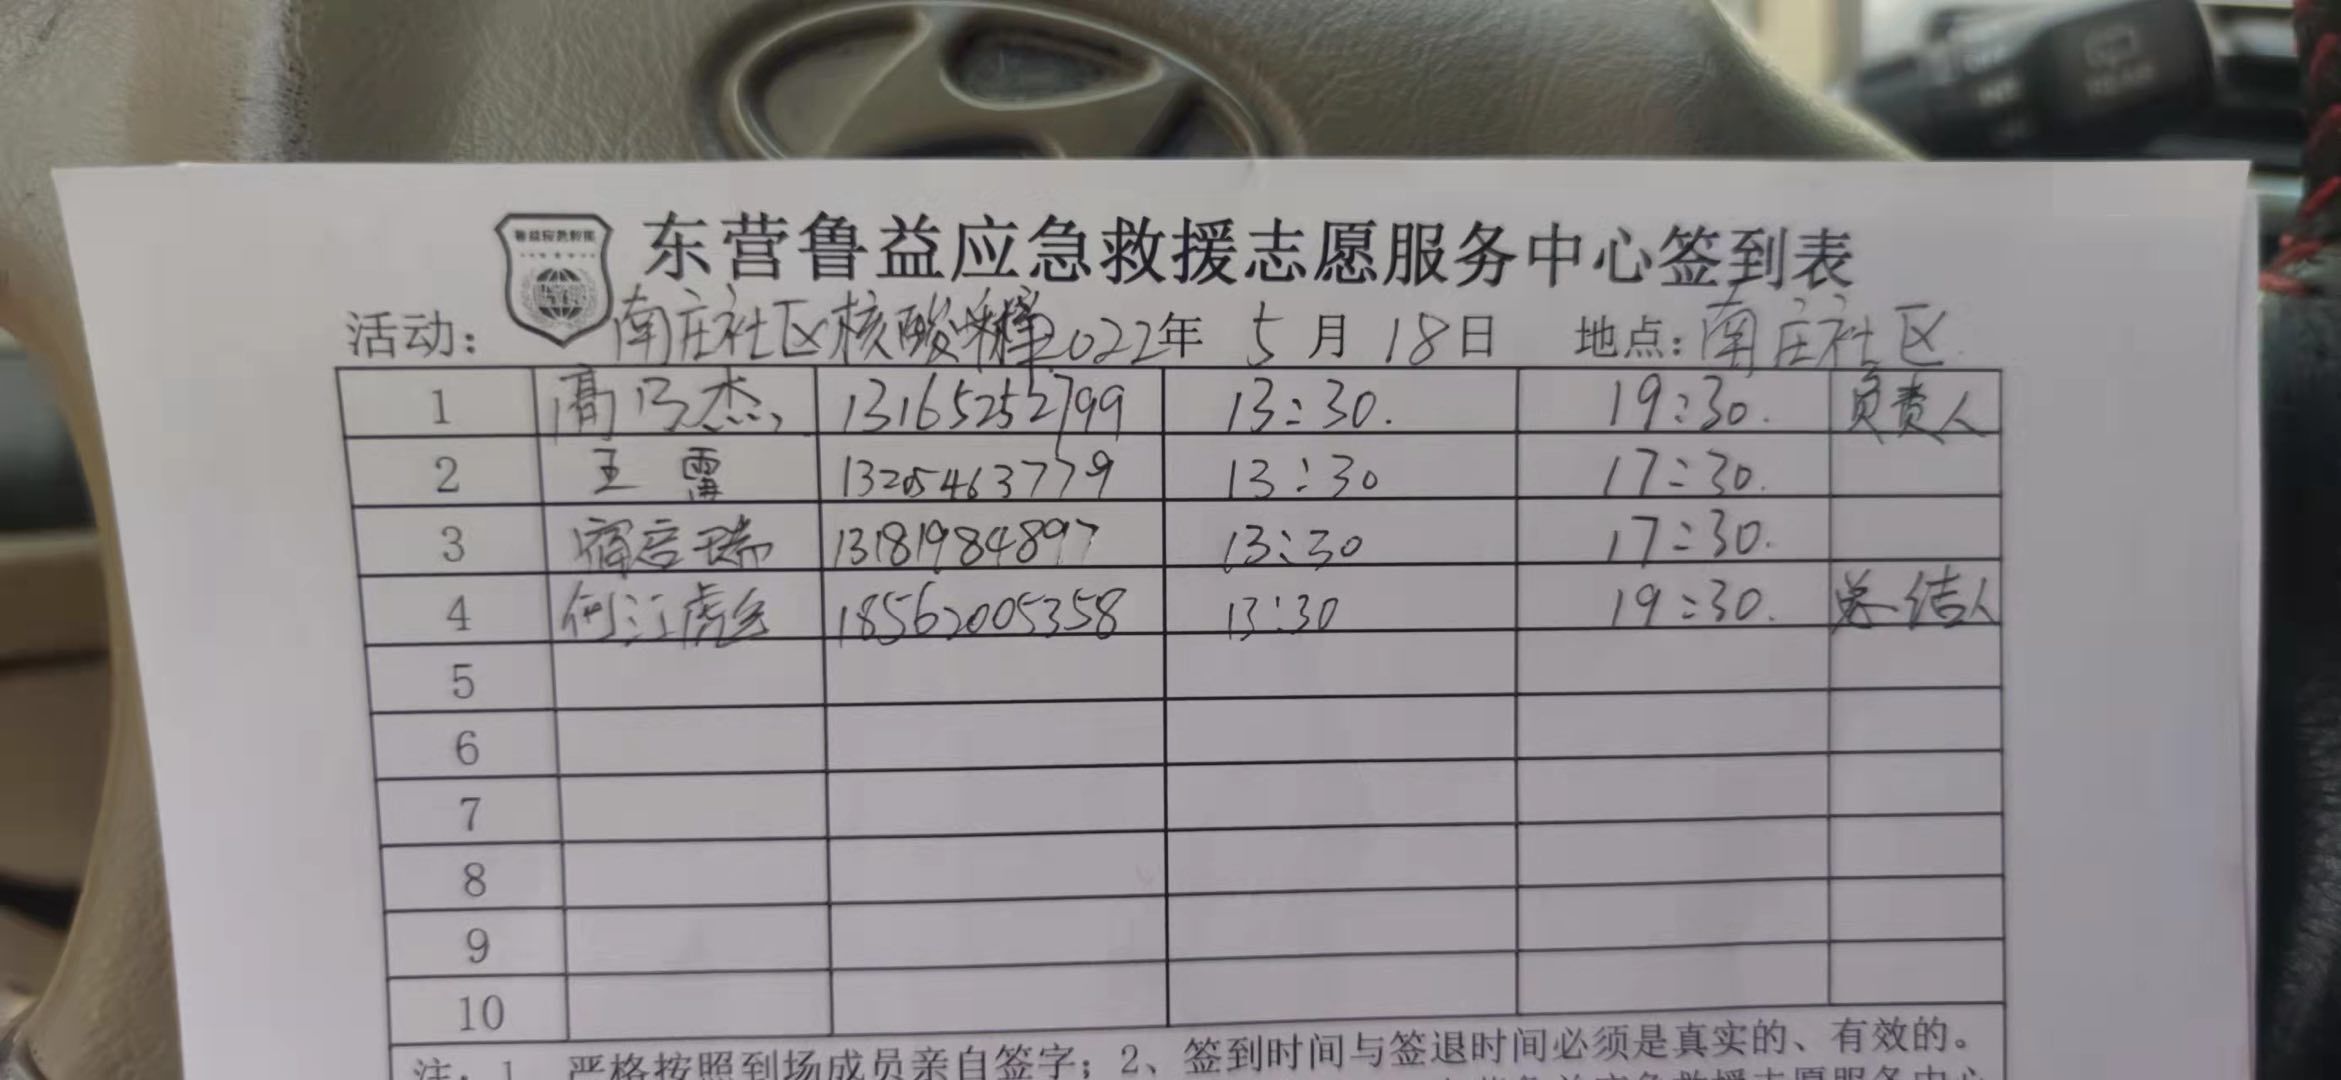 鲁益应急救援
东营鲁益应急救援志愿服务中心签到表
活动: 南庄社区核酸采样 2022年 5月 18日 地点: 南庄社区
1 高乃杰 13165252799 13:30. 19:30. 负责人
2 王雷 13205463779 13:30 17:30.
3 宿启瑞 13181984897 13:30 17:30.
4 何江虎 18562005358 13:30 19:30. 总结人
5
6
7
8
9
10
注: 1、严格按照到场成员亲自签字; 2、签到时间与签退时间必须是真实的、有效的。
应急救援志愿服务中心